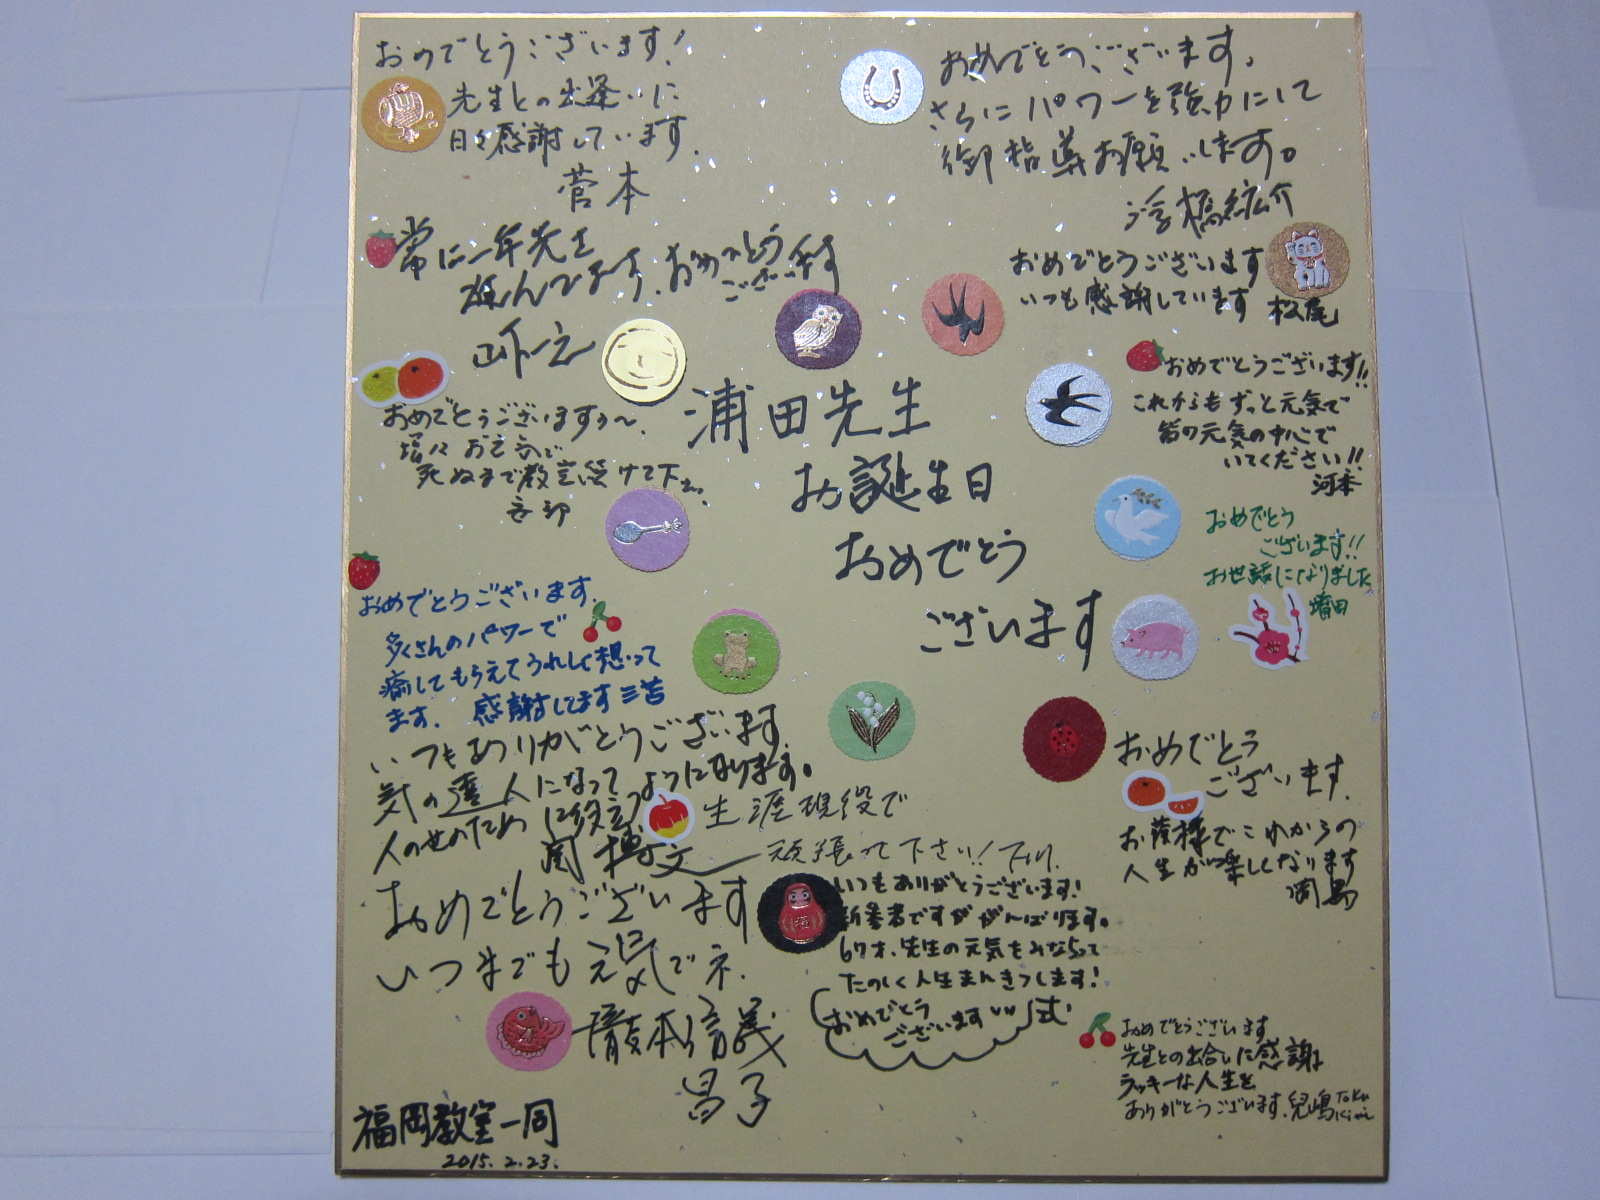 おめでとうございます!
先生との出逢いに
日々感謝しています.
菅本
おめでとうございます。
さらにパワーを強力にして
御指導お願いします。
浮橋紘介
常に一年先を
進んでます.おめでとう
ございます
山下一之
おめでとうございます
いつも感謝しています 松尾
おめでとうございます!!
これからもずっと元気で
皆の元気の中心で
いてください!!
河本
おめでとうございますぅ～.
増々お元気で
死ぬまで教え続けて下さい.
浦田先生
お誕生日
おめでとう
ございます
おめでとう
ございます!!
お世話になりました
増田
おめでとうございます.
多くさんのパワーで
癒してもらえてうれしく想って
ます. 感謝してます 三苫
いつもありがとうございます.
気の達人になって
人の世のため に役立つようになります。
関 博文
生涯現役で
頑張って下さい! 下川.
おめでとう
ございます.
お蔭様でこれからの
人生が楽しくなります
岡島
おめでとうございます
いつまでも元気でネ.
瀧本信義
昌子
いつもありがとうございます!
新参者ですががんばります。
67才、先生の元気をみならって
たのしく人生まんきつします!
おめでとう
ございます
おめでとうございます
先生との出合いに感謝
ラッキーな人生を
ありがとうございます.兒嶋 Toku
Kimi
福岡教室一同
2015.2.23.